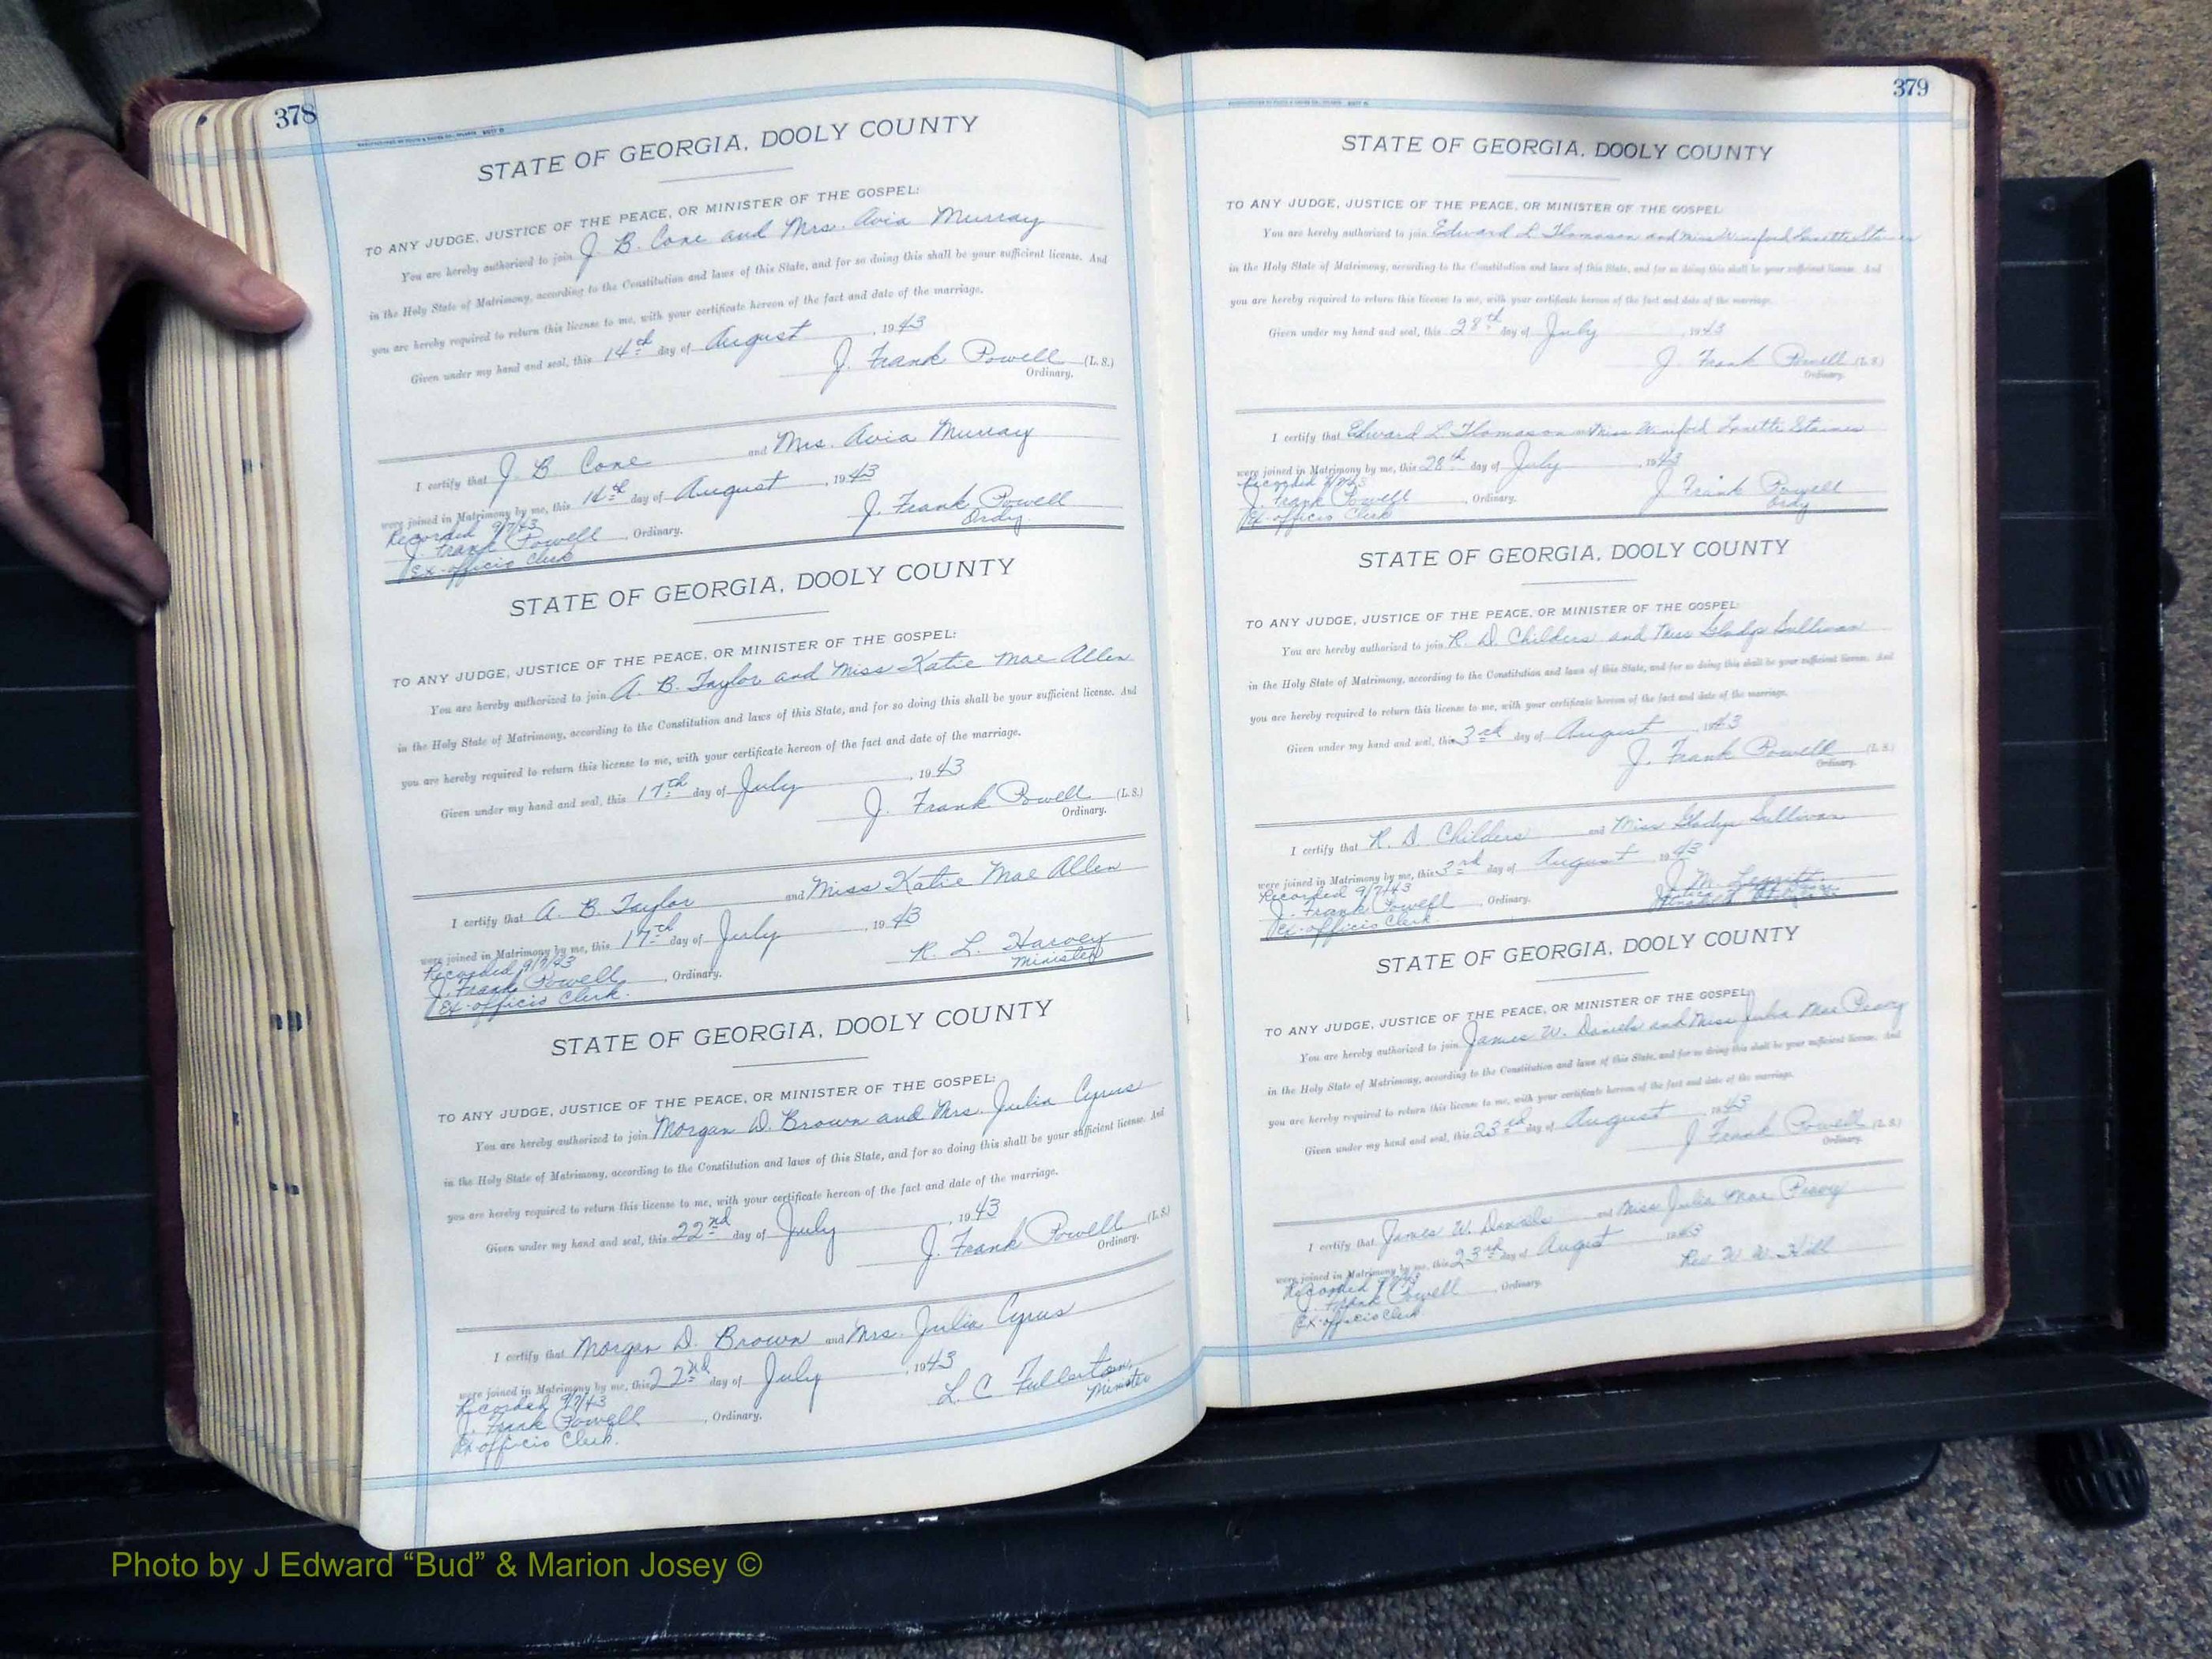 378
STATE OF GEORGIA, DOOLY COUNTY
TO ANY JUDGE, JUSTICE OF THE PEACE, OR MINISTER OF THE GOSPEL:
You are hereby authorized to join J. B. Cone and Mrs. Avia Murray
in the Holy State of Matrimony, according to the Constitution and laws of this State, and for so doing this shall be your sufficient license. And
you are hereby required to return this license to me, with your certificate hereon of the fact and date of the marriage.
Given under my hand and seal, this 14th day of August, 1943
J. Frank Powell (L. S.)
Ordinary.
I certify that J. B. Cone and Mrs. Avia Murray
were joined in Matrimony by me, this 14th day of August, 1943
Recorded 9/7/43
J. Frank Powell, Ordinary. J. Frank Powell
Ex-officio Clerk Ordy.
STATE OF GEORGIA, DOOLY COUNTY
TO ANY JUDGE, JUSTICE OF THE PEACE, OR MINISTER OF THE GOSPEL:
You are hereby authorized to join A. B. Taylor and Miss Katie Mae Allen
in the Holy State of Matrimony, according to the Constitution and laws of this State, and for so doing this shall be your sufficient license. And
you are hereby required to return this license to me, with your certificate hereon of the fact and date of the marriage.
Given under my hand and seal, this 17th day of July, 1943
J. Frank Powell (L. S.)
Ordinary.
I certify that A. B. Taylor and Miss Katie Mae Allen
were joined in Matrimony by me, this 17th day of July, 1943
Recorded 9/7/43 R. L. Harvey
J. Frank Powell, Ordinary. Minister
Ex-officio Clerk.
STATE OF GEORGIA, DOOLY COUNTY
TO ANY JUDGE, JUSTICE OF THE PEACE, OR MINISTER OF THE GOSPEL:
You are hereby authorized to join Morgan D. Brown and Mrs. Julia Cyrus
in the Holy State of Matrimony, according to the Constitution and laws of this State, and for so doing this shall be your sufficient license. And
you are hereby required to return this license to me, with your certificate hereon of the fact and date of the marriage.
Given under my hand and seal, this 22nd day of July, 1943
J. Frank Powell (L. S.)
Ordinary.
I certify that Morgan D. Brown and Mrs. Julia Cyrus
were joined in Matrimony by me, this 22nd day of July, 1943
Recorded 9/7/43 L. C. Fullerton,
J. Frank Powell, Ordinary. Minister
Ex officio Clerk.
379
STATE OF GEORGIA, DOOLY COUNTY
TO ANY JUDGE, JUSTICE OF THE PEACE, OR MINISTER OF THE GOSPEL:
You are hereby authorized to join Edward L Thomason and Miss Winiford Lanette
in the Holy State of Matrimony, according to the Constitution and laws of this State, and for so doing this shall be your sufficient license. And
you are hereby required to return this license to me, with your certificate hereon of the fact and date of the marriage.
Given under my hand and seal, this 28th day of July, 1943
J. Frank Powell (L. S.)
Ordinary.
I certify that Edward L Thomason Miss Winiford Lanette
were joined in Matrimony by me, this 28th day of July, 1943
Recorded 9/7/43
J. Frank Powell, Ordinary. J Frank Powell
Ex-officio Clerk Ordy.
STATE OF GEORGIA, DOOLY COUNTY
TO ANY JUDGE, JUSTICE OF THE PEACE, OR MINISTER OF THE GOSPEL:
You are hereby authorized to join R. D. Childers and Miss Gladys Sullivan
in the Holy State of Matrimony, according to the Constitution and laws of this State, and for so doing this shall be your sufficient license. And
you are hereby required to return this license to me, with your certificate hereon of the fact and date of the marriage.
Given under my hand and seal, this 3rd day of August, 1943
J. Frank Powell (L. S.)
Ordinary.
I certify that R. D. Childers and Miss Gladys Sullivan
were joined in Matrimony by me, this 3rd day of August 1943
Recorded 9/7/43 J. M. Leggitt
J. Frank Powell, Ordinary.
Ex-officio Clerk
STATE OF GEORGIA, DOOLY COUNTY
TO ANY JUDGE, JUSTICE OF THE PEACE, OR MINISTER OF THE GOSPEL:
You are hereby authorized to join James W. Daniels and Miss Julia Mae Peavy
in the Holy State of Matrimony, according to the Constitution and laws of this State, and for so doing this shall be your sufficient license. And
you are hereby required to return this license to me, with your certificate hereon of the fact and date of the marriage.
Given under my hand and seal, this 23rd day of August, 1943
J Frank Powell (L. S.)
Ordinary.
I certify that James W. Daniels and Miss Julia Mae Peavy
were joined in Matrimony by me, this 23rd day of August 1943
Recorded 9/7/43 Rev W. W. Hill
J. Frank Powell, Ordinary.
Ex-officio Clerk
Photo by J Edward “Bud” & Marion Josey ©